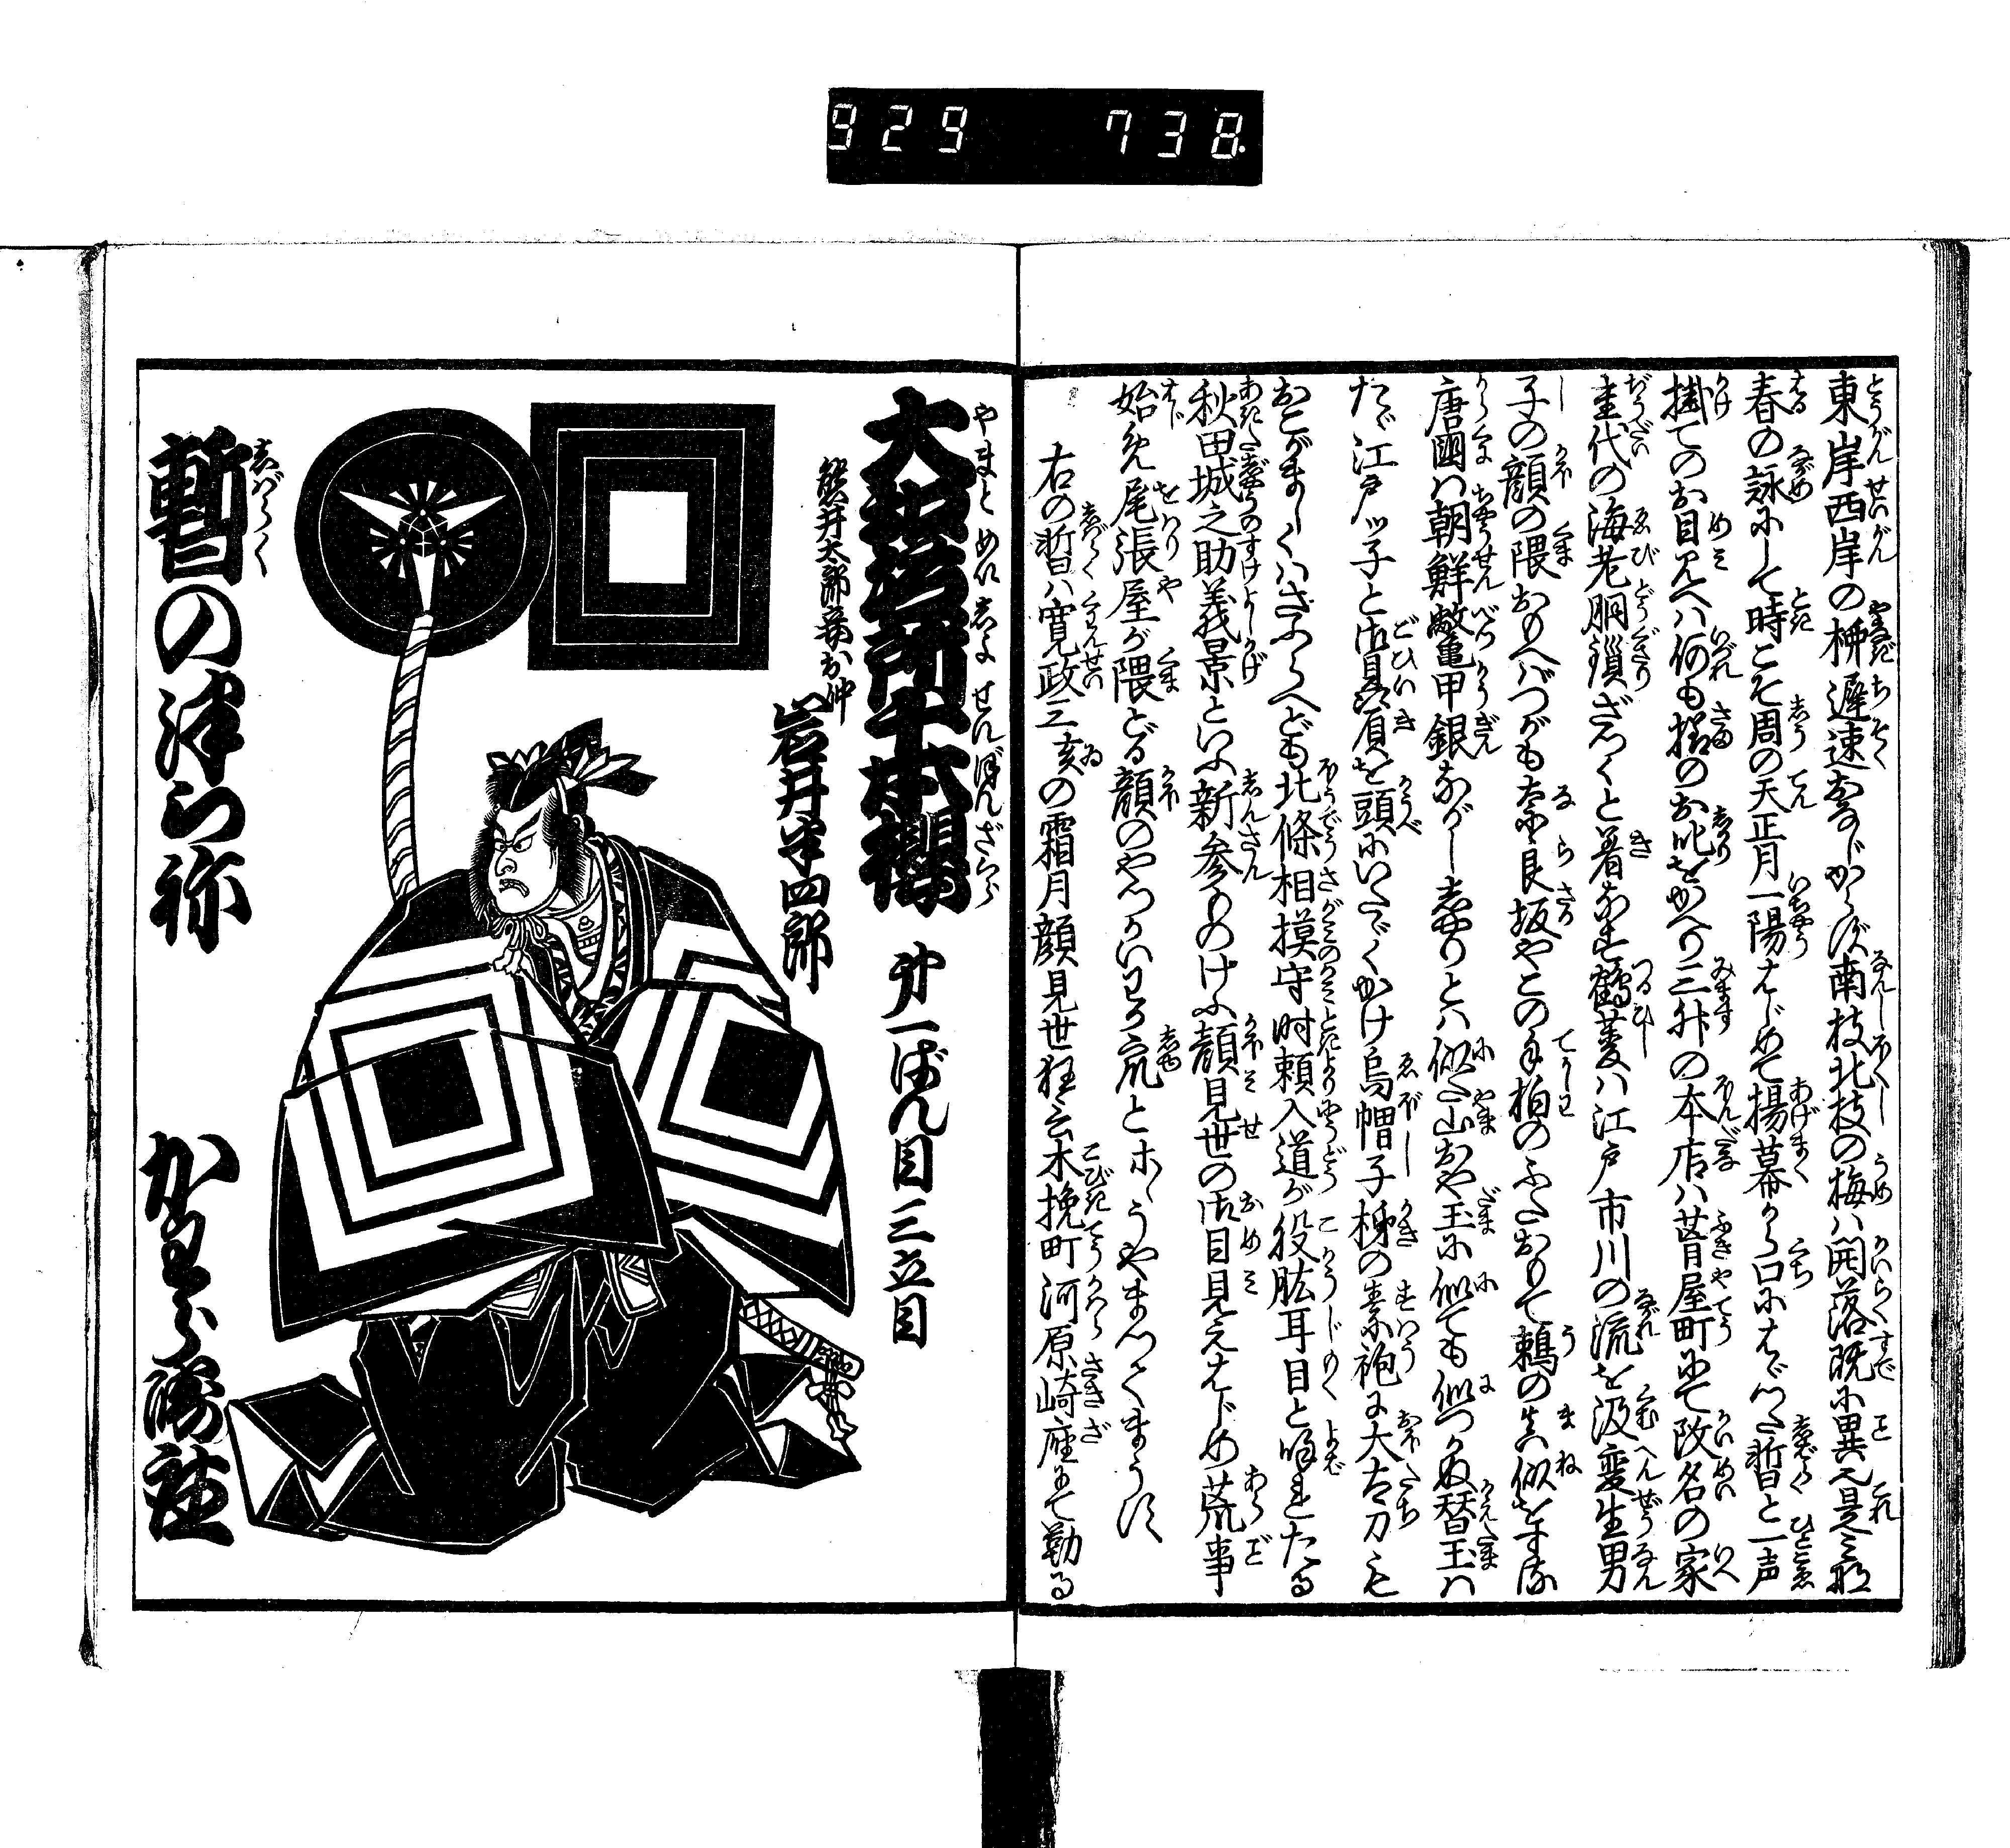 929 738
東岸西岸の柳遅速おなじからず南枝北枝の梅は開落既に異也是ミな
春の詠にして時こそ周の天正月一陽はじめて揚幕から口にはバつた暫と一声
掛てのお目見へハ何も様のお叱をかへり三升の本店ハ葺屋町にて改名の家
重代の海老胴鎖ざつくと着なす鶴菱ハ江戸市川の流を汲変生男
子の顔の隈おもへバつがも奈良坂やこの手柏のふたおもて鵜の真似をする
唐国ハ朝鮮鼈亀甲銀ながし志やりとハ似た山おや玉に似ても似つかぬ替玉ハ
たゞ江戸ッ子と御贔屓を頭にいたゞくかけ烏帽子柿の素袍に大太刀も
おこがましくハさふらへども北條相摸守時頼入道が役肱耳目と呼れたる
秋田城之助義景といふ新参ものけふ顔見世の御目見えはじめ荒事
始め尾張屋が隈どる顔のやつかいわる者とホヽうやまつてまうす
右の暫ハ寛政三亥の霜月顔見世狂言木挽町河原崎座にて勤る
大和名所千本桜 第一ばん目三立目
やまとめいしよせんぼんざくら
熊井太郎妻お仲
岩井半四郎
暫のつらね
しばらく